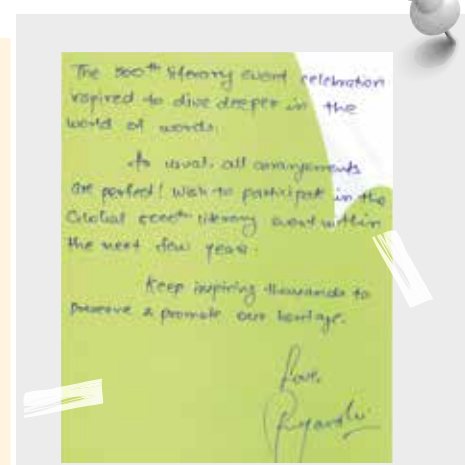 The 500th literary event celebration
inspired to dive deeper in the
world of words.
As usual, all arrangements
are perfect! Wish to participate in the
Global literary event within
the next few years.
Keep inspiring thousands to
preserve & promote our heritage.
Love,